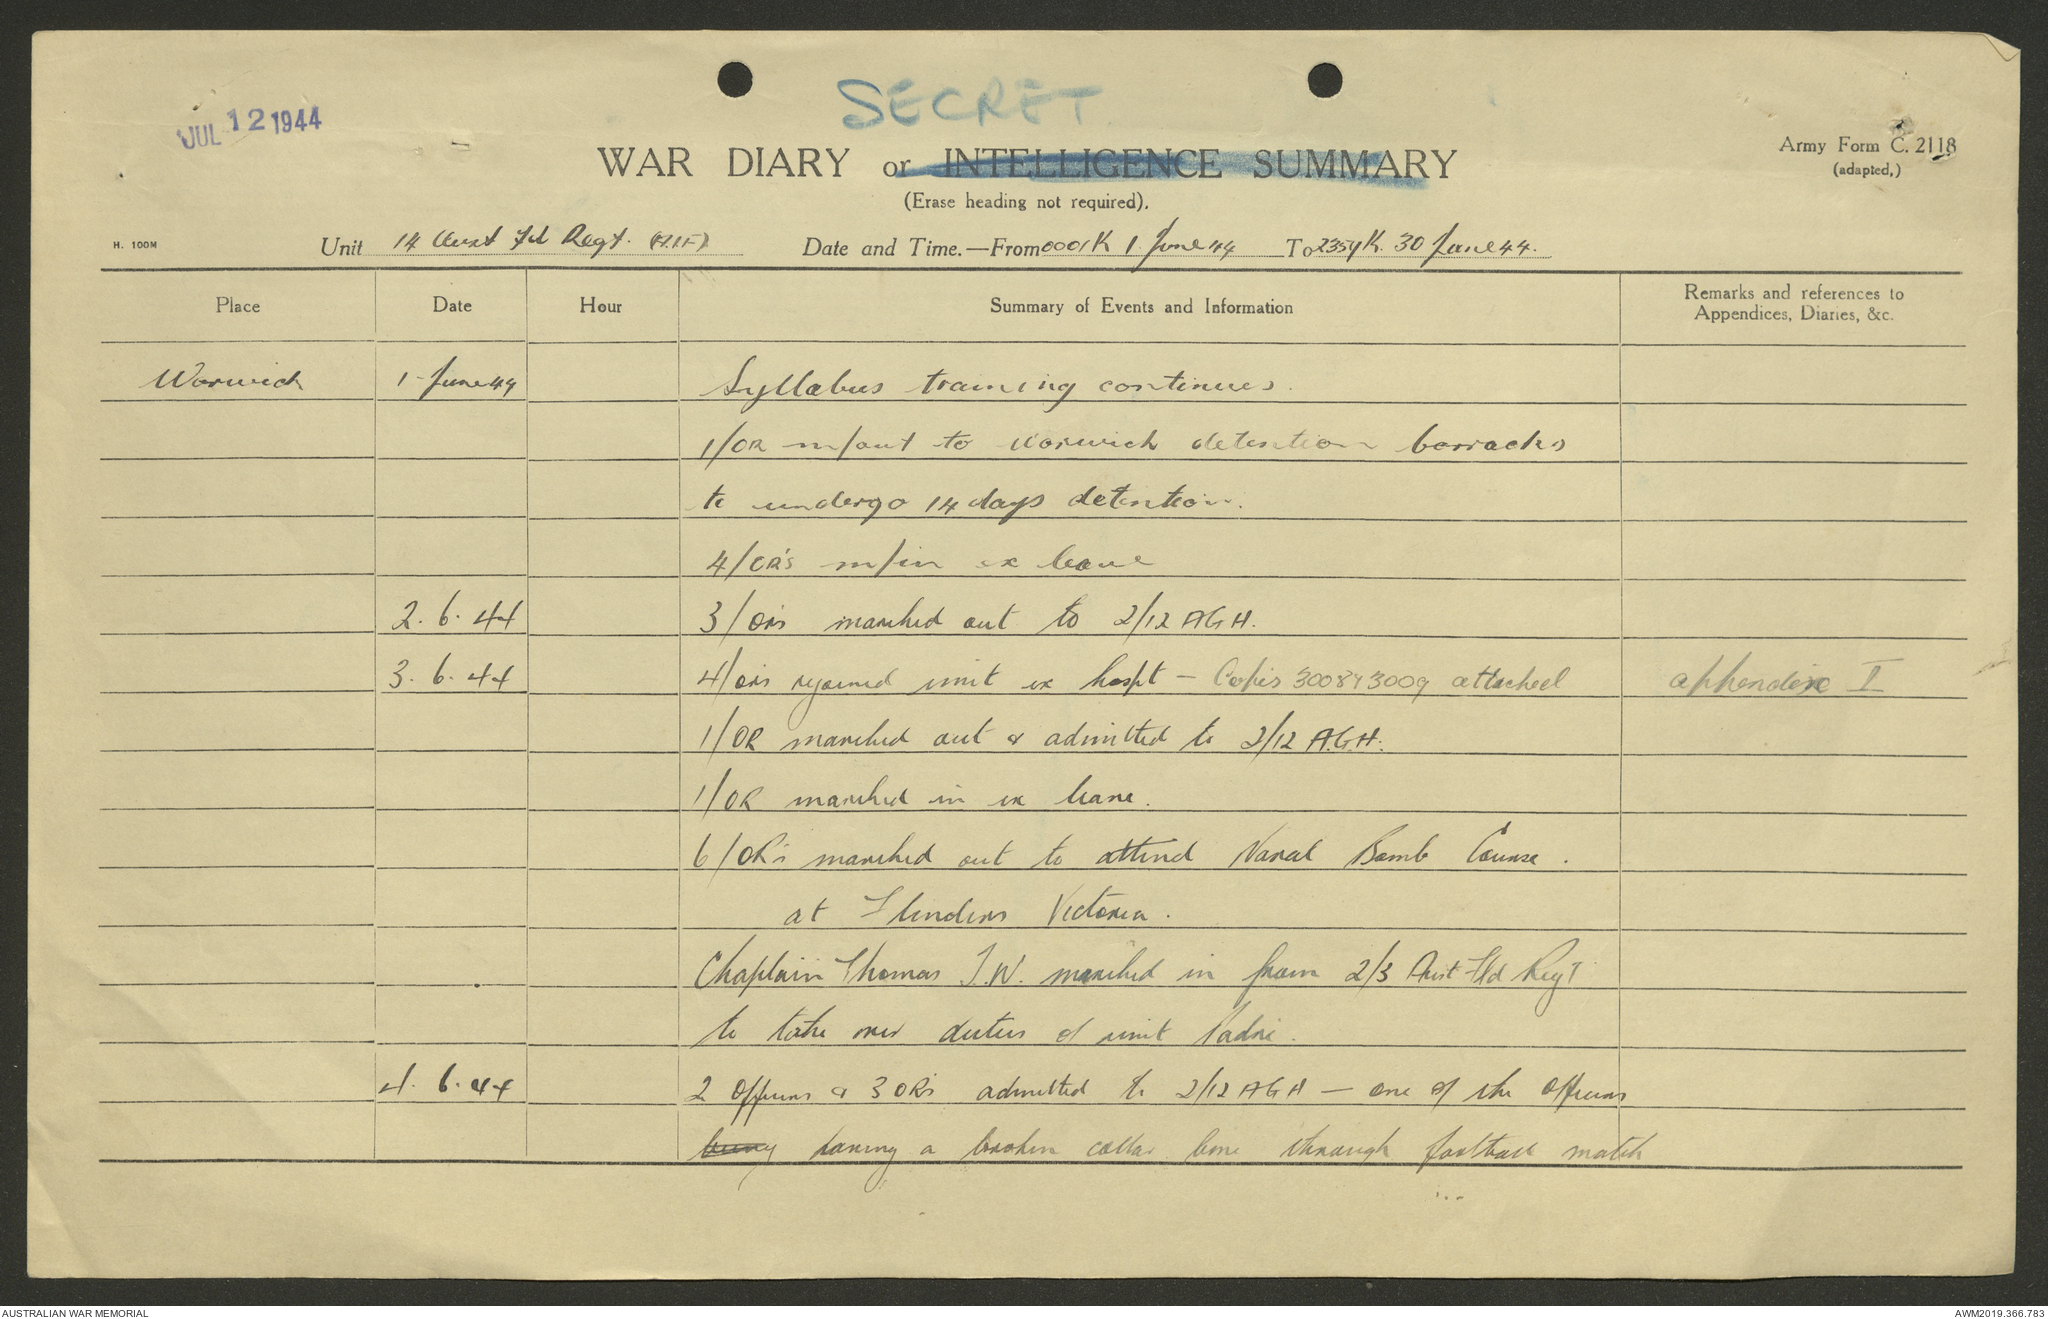 SECRET
JUL 12 1944
WAR DIARY or INTELLIGENCE SUMMARY
Army Form C. 2118
(adapted.)
(Erase heading not required).
H. 100M
Unit 14 Aust Fd Regt. (AIF) Date and Time.—From 0001K 1 June 44 To 2359K. 30 June 44.
Place Date Hour Summary of Events and Information Remarks and references to
Appendices, Diaries, &c.
Warwick 1 June 44 Syllabus training continues.
1/OR m/out to Warwick detention barracks
to undergo 14 days detention.
4/OR's m/in ex leave
2. 6. 44 3/ORs marched out to 2/12 AGH.
3. 6. 44 4/ORs rejoined unit ex hospt - Copies 3008 & 3009 attached appendix I
1/OR marched out & admitted to 2/12 A.G.H.
1/OR marched in ex leave.
6/OR's marched out to attend Naval Bomb Course.
at Flinders Victoria.
Chaplain Thomas J.W. marched in from 2/3 Aust Fld Regt
to take over duties of unit Padre.
4. 6. 44 2 Officers & 3 OR's admitted to 2/12 AGH — one of the Officers
being having a broken collar bone through football match
AUSTRALIAN WAR MEMORIAL AWM2019.366.783